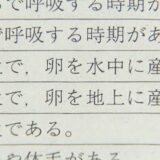 で呼吸する時期が
で呼吸する時期があ
で，卵を水中に産
で，卵を地上に産
である。
や体毛がある